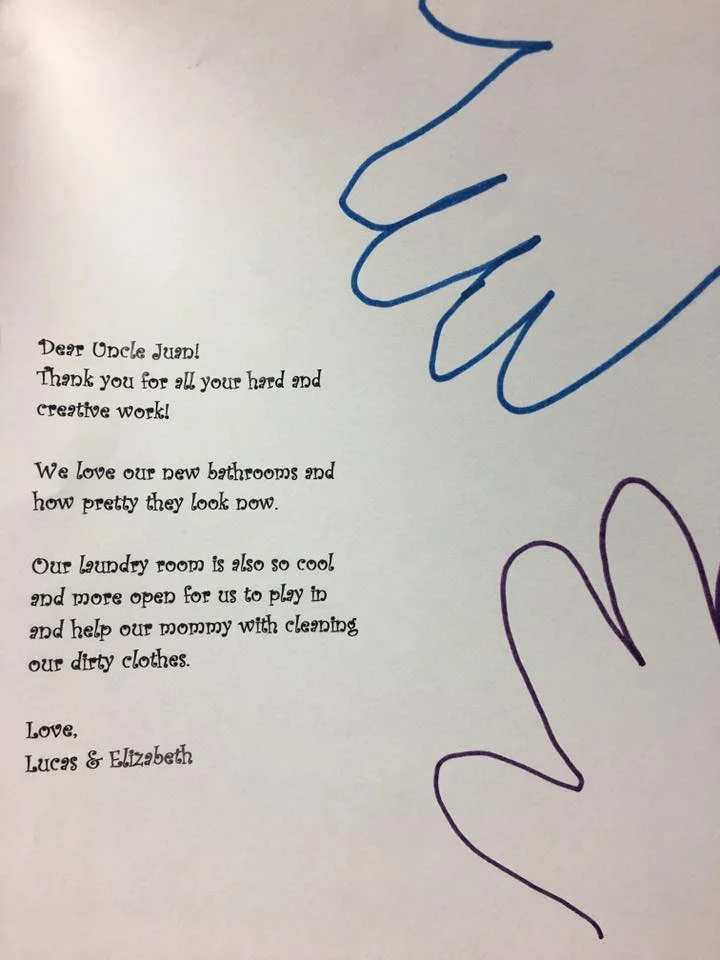 Dear Uncle Juan!
Thank you for all your hard and
creative work!
We love our new bathrooms and
how pretty they look now.
Our laundry room is also so cool
and more open for us to play in
and help our mommy with cleaning
our dirty clothes.
Love,
Lucas & Elizabeth